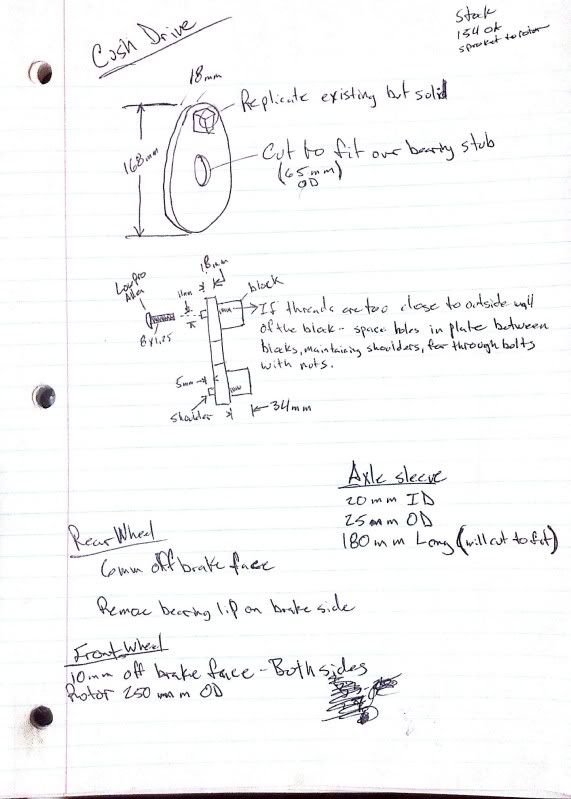 Cush Drive
Stock
154 OK
sprocket to rotor
18mm
Replicate existing but solid
168mm
Cut to fit over bearing stub
(65mm)
OD
18mm
11mm
block
LowPro
Allen
8x1.25
If threads are too close to outside wall
of the block - space holes in plate between
blocks, maintaining shoulders, for through bolts
with nuts.
5mm
shoulder
34mm
Axle sleeve
20mm ID
25mm OD
180mm Long (will cut to fit)
Rear Wheel
6mm off brake face
Remove bearing lip on brake side
Front Wheel
10mm off brake face - Both sides
Rotor 250mm OD